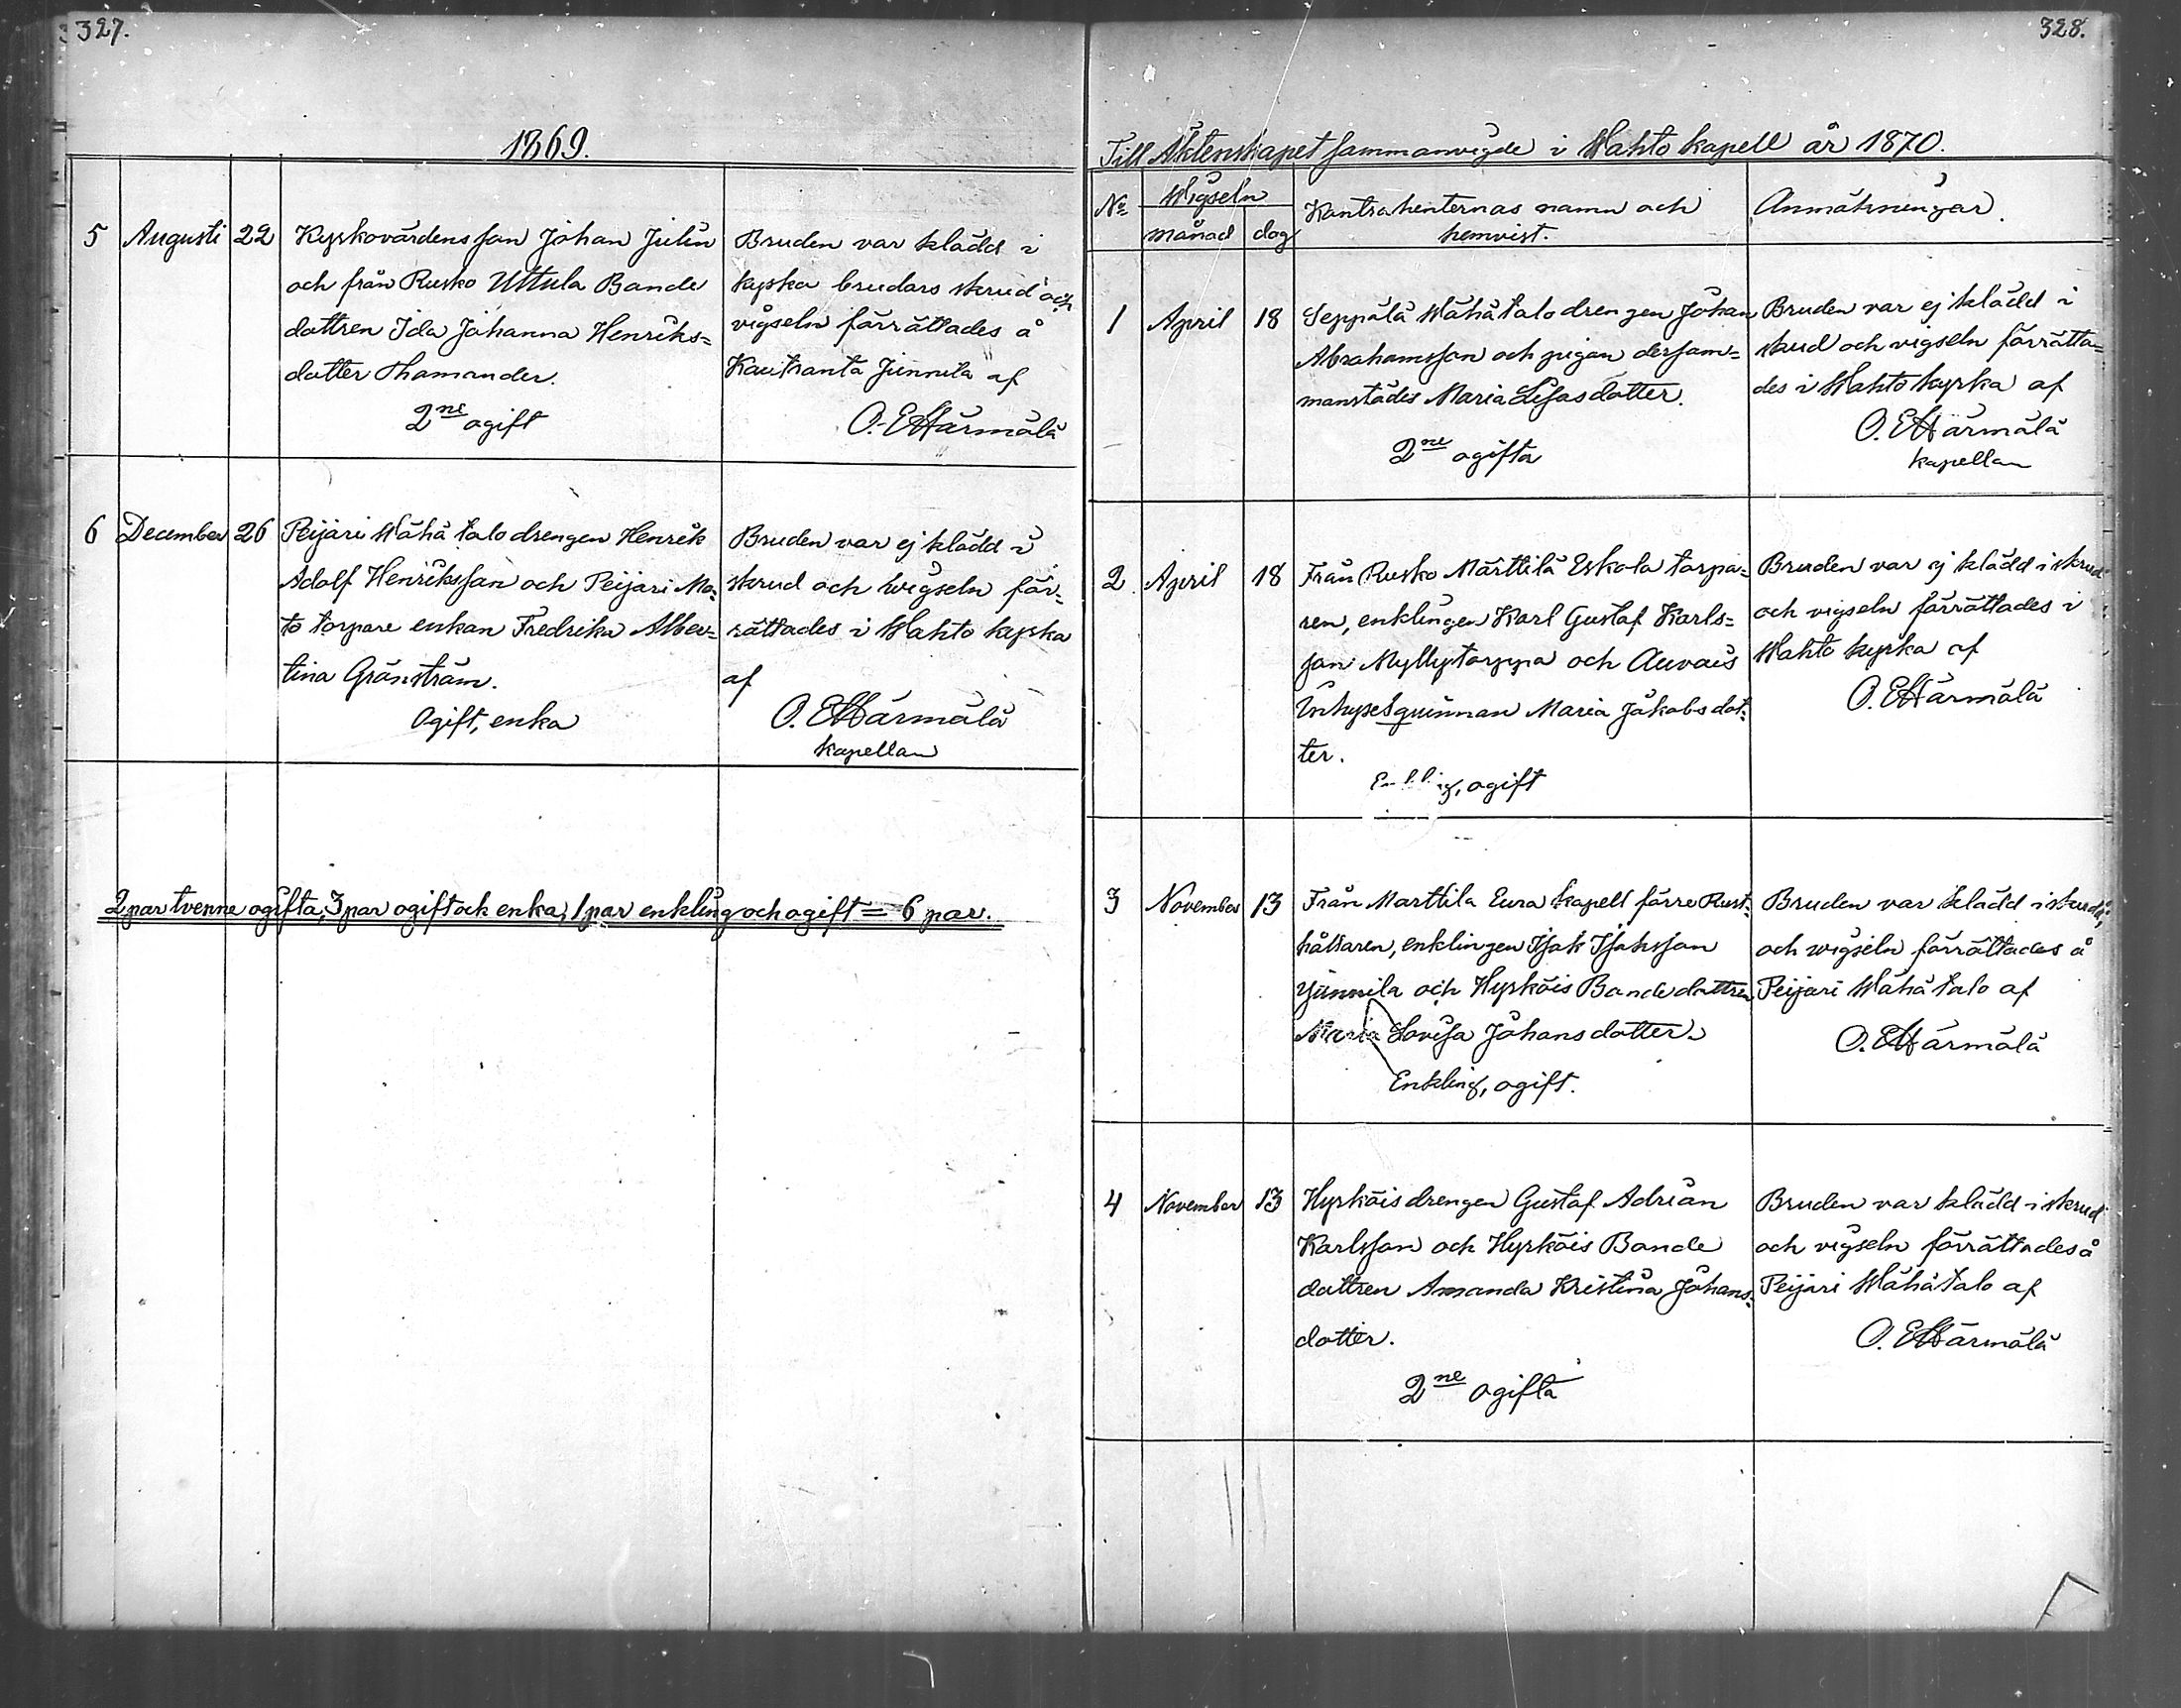 327.
1869.
5 Augusti 22 Kyrkovärdens son Johan Julin
och från Rusko Uttula Bonde
dottren Ida Johanna Henriks=
dotter Thamander.
2ne ogift
Bruden var klädd i
kyska brudars skrud och
vigseln förrättades å
Kautranta Junnila af
O. E Härmälä
6 December 26 Peijari Wähä talo drengen Henrik
Adolf Henriksson och Peijari Mä=
tö torpare enkan Fredrika Alber=
tina Gränström.
Ogift, enka
Bruden var ej klädd i
skrud och wigseln för=
rättades i Wahto kyrka
af
O. E Härmälä
kapellan
2 par tvenne ogifta, 3 par ogift och enka, 1 par enkling och ogift = 6 par.
328.
Till Äktenskapet sammanvigde i Wahto kapell år 1870.
No Wigseln
månad dag
Kontrahenternas namn och
hemvist.
Anmärkningar.
1 April 18 Seppälä Wähätalo drengen Johan
Abrahamsson och pigan dersam=
manstädes Maria Lisasdotter.
2ne ogifta
Bruden var ej klädd i
skrud och vigseln förrätta=
des i Wahto kyrka af
O. E Härmälä
kapellan
2 April 18 Från Rusko Märttilä Eskola torpa=
ren, enklingen Karl Gustaf Karls=
son Myllytorppa och Auvais
Inhysesqvinnan Maria Jakobs dot=
ter.
Enkling, ogift
Bruden var ej klädd i skrud
och vigseln förrättades i
Wahto kyrka af
O. E Härmälä
3 November 13 Från Marttila Eura kapell förre Rust=
hållaren, enklingen Isak Isaksson
Yünnilä och Hyrköis Bonde dottren
Maria Lovisa Johansdotter.
Enkling, ogift.
Bruden var klädd i skrud,
och wigseln förrättades å
Peijari Wähä talo af
O. E Härmälä
4 November 13 Hyrköis drengen Gustaf Adrian
Karlsson och Hyrköis Bonde
dottren Amanda Kristina Johans=
dotter.
2ne ogifta
Bruden var klädd i skrud
och vigseln förrättades å
Peijari Wähätalo af
O. E Härmälä